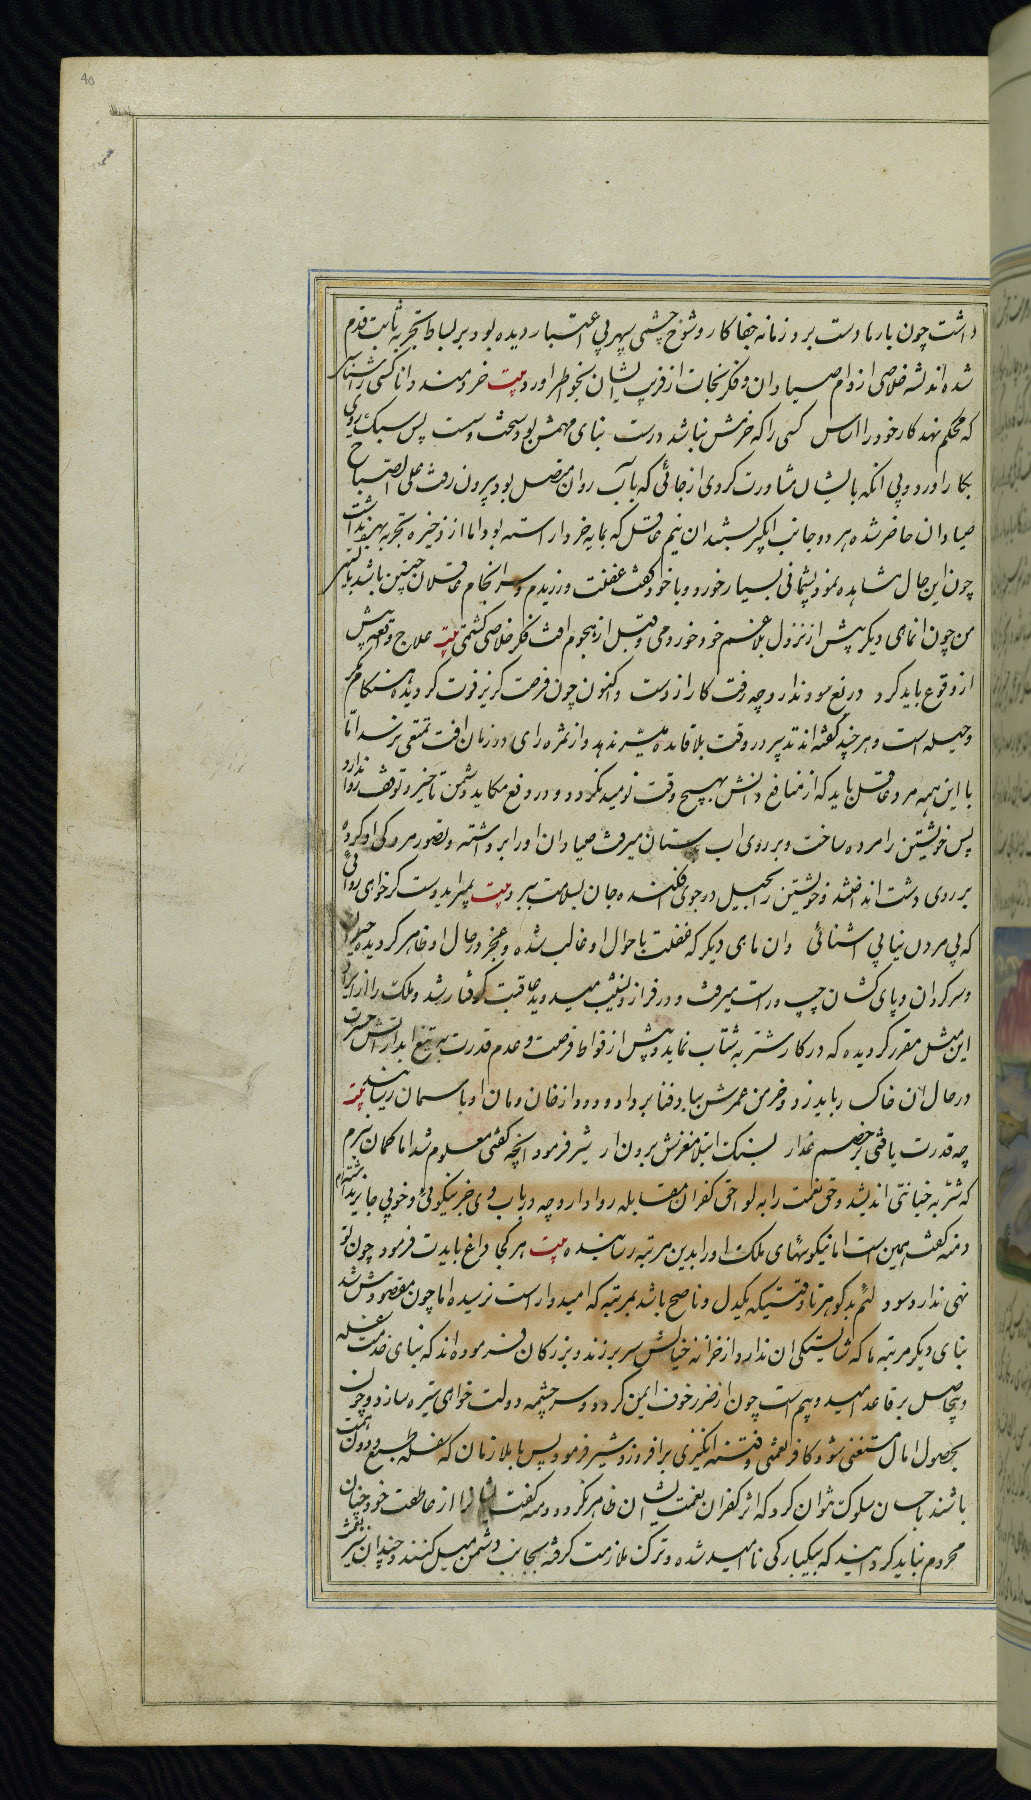 داشت چون بارها دست برد زمانه جفا کار و شوخ چشمی سپهر بی اعتبار دیده بود و بر بساط تجربه ثابت قدم
شده اندیشه خلاصی از دام صیادان و فکر نجات از فریب ایشان بخواطر آورد بیت خردمند دانا کسی را شناس
که محکم نهد کار خود را اساس کسی را که خردش نباشد درست بنای مهمش بود سخت سست پس سبک روی
بکار آورد و بی انکه با ایشان مشاورت کردی از جائی که بآب روان متصل بود بیرون رفت علی الصباح
صیادان حاضر شده هر دو جانب ابگیر ببستند ان نیم عاقل که بمایه خرد اراسته بود اما از ذخیره تجربه بهره نداشت
چون این حال مشاهده نمود پشیمانی بسیار خورد و با خود گفت غفلت ورزیدم و سرانجام غافلان چنین باشد بایستی
من چون ان ماهی دیگر پیش از نزول بلا غم خود خوردمی و قبل از هجوم افت فکر خلاصی کشتمی بیت علاج واقعه پیش
از وقوع باید کرد دریغ سود ندارد چه رفت کار از دست و کنون چون فرصت گریز فوت گردید هنگام مکر
و حیله است و هر چند گفته اند تدبیر در وقت بلا فایده بیشتر ندهد و از ثمره رای در زمان افت تمتعی نرسد اما
با این همه مرد عاقل باید که از منافع دانش بهیچ وقت نومید نگردد و در دفع مکاید دشمن تاخیر و توقف روا ندارد
پس خویشتن را مرده ساخت و بر روی اب ستان میرفت صیادان او را برداشته و تصور مردگی او کرده
بر روی دشت انداختند و خویشتن را بحیل در جوی افکنده جان بسلامت ببرد بیت بمیر ای دوست گر خواهی رهائی
که بی مردن نیابی اشنائی وان ماهی دیگر که غفلت باحوال او غالب شده و عجز در حال او ظاهر گردیده حیران
و سرگردان و پای کشان چپ و راست میرفت و در فراز و نشیب میدوید عاقبت گرفتار شد و ملک را از ایراد
این مثل مقرر گردیده که در کار شتربه شتاب نماید و پیش از فوات فرصت و عدم قدرت به تیغ ابدار اتش حسرت
در حال ان خاک رباید زد و خرمن عمرش بباد فنا برداد و دود از خان و مان او باسمان رساند بیت
چه قدرت یافتی بر خصم غدار بسنگ ابتلا مغزش برون ار شیر فرمود انچه گفتی معلوم شد اما گمان نبرم
که شتربه خیانتی اندیشد و حق نعمت را به لواحق کفران مقابله روا دارد چه در باب وی جز نیکوئی و خوبی جایز نداشته ام
دمنه گفت همین است اما نیکوئیهای ملک او را بدین مرتبه رسانیده بیت هر کجا داغ بایدت فرمود چون تو
نهی ندارد سود لئیم بدگوهر تا وقتی یکدل و ناصح باشد بمرتبه که امیدوار است نرسیده اما چون مقصودش شد
بنای دیگر مرتبه ها که شایستگی ان ندارد از خزانه خیالش سر بر زند و بزرگان فرموده اند که بنای خدمت سفله
و بیحاصل بر قاعده امید و بیم است چون از ضرر خوف ایمن گردد و سرچشمه دولت خواهی تیره سازد و چون
بحصول امال مستغنی شود کافر نعمتی و فتنه انگیزی برافروزد شیر فرمود پس با ملازمان که سفله طبع و دون همت
باشند چسان سلوک توان کرد که اثر کفران نعمت ایشان ظاهر نگردد دمنه گفت ایشانرا از عاطفت خود چنان
محروم نباید گردانید که بیکبارگی نا امید شده و ترک ملازمت گرفته بجانب دشمن میل کنند و چندان نیز نعمت